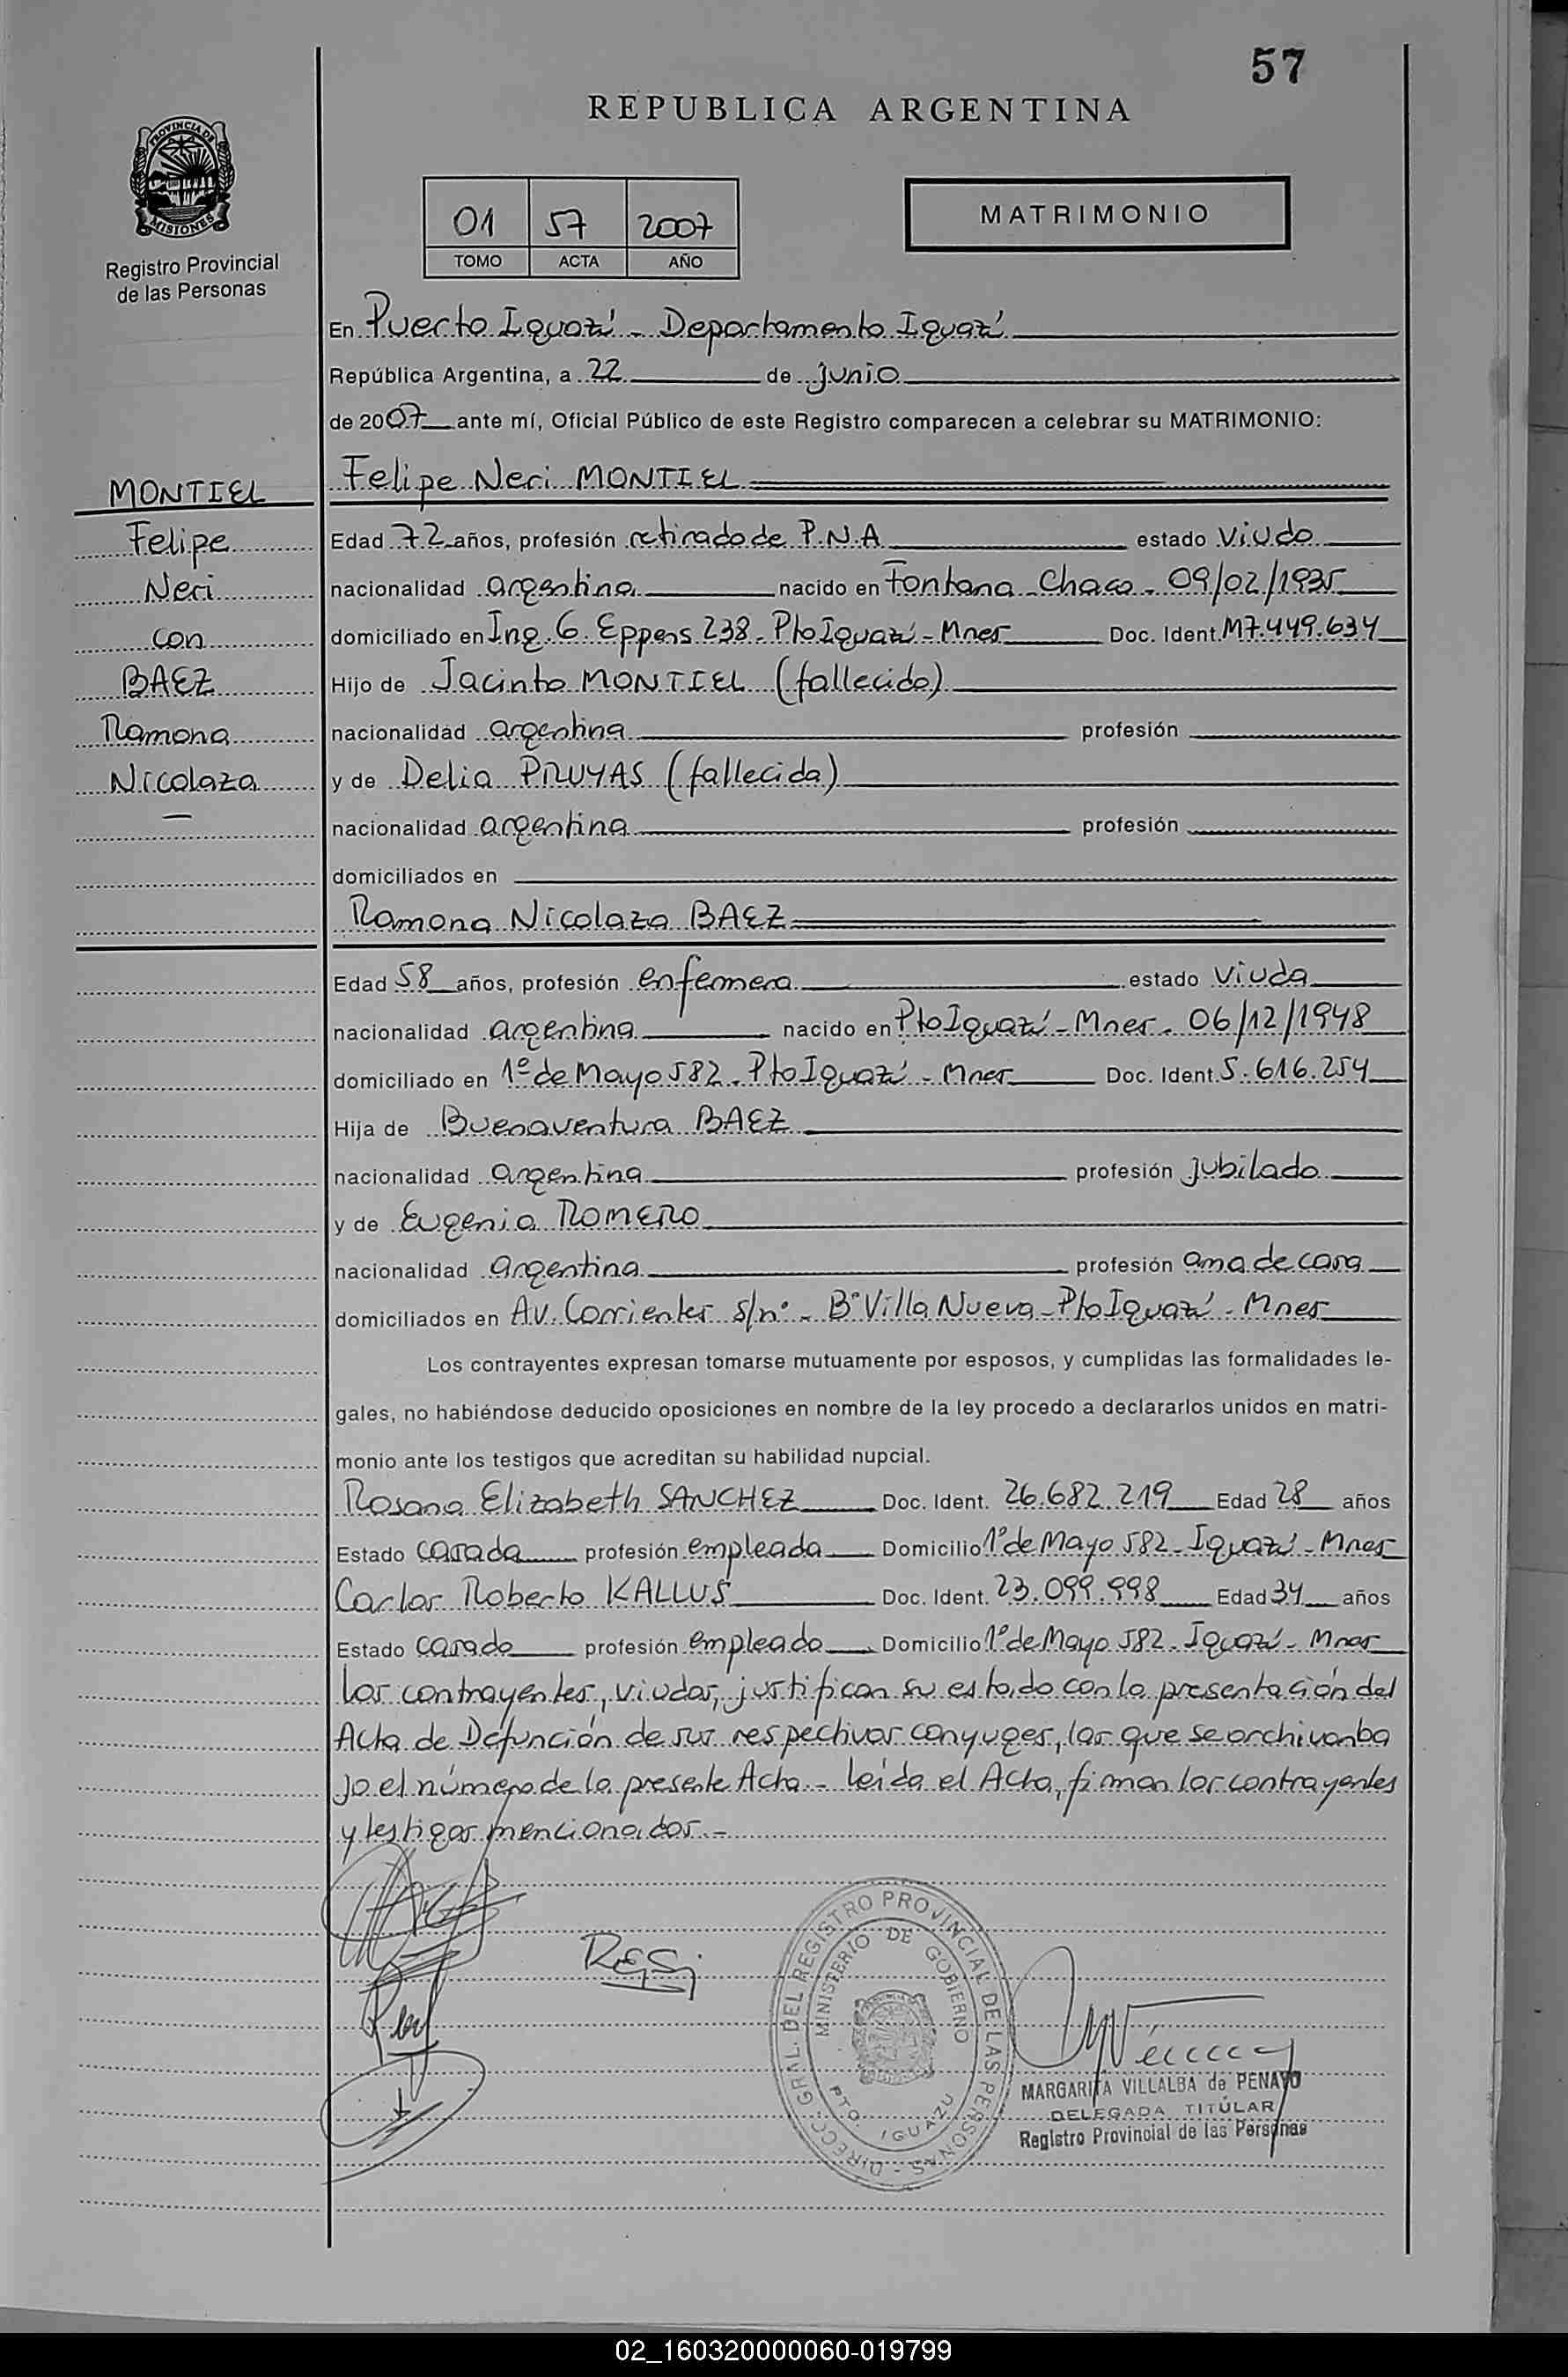 57
REPUBLICA ARGENTINA
PROVINCIA DE
MISIONES
Registro Provincial
de las Personas
01 57 2007
TOMO ACTA AÑO
MATRIMONIO
En Puerto Iguazú - Departamento Iguazú
República Argentina, a 22 de junio
de 2007 ante mí, Oficial Público de este Registro comparecen a celebrar su MATRIMONIO:
MONTIEL
Felipe
Neri
con
BAEZ
Ramona
Nicolaza
—
Felipe Neri MONTIEL
Edad 72 años, profesión retirado de P.N.A estado viudo
nacionalidad argentina nacido en Fontana - Chaco - 09/02/1935
domiciliado en Ing. G. Eppens 238 - Pto Iguazú - Mnes Doc. Ident. M7.449.634
Hijo de Jacinto MONTIEL (fallecido)
nacionalidad argentina profesión
y de Delia PRUYAS (fallecida)
nacionalidad argentina profesión
domiciliados en
Ramona Nicolaza BAEZ
Edad 58 años, profesión enfermera estado viuda
nacionalidad argentina nacido en Pto Iguazú - Mnes - 06/12/1948
domiciliado en 1º de Mayo 582 - Pto Iguazú - Mnes Doc. Ident. 5.616.254
Hija de Buenaventura BAEZ
nacionalidad argentina profesión jubilado
y de Eugenia ROMERO
nacionalidad argentina profesión ama de casa
domiciliados en Av. Corrientes s/nº - Bº Villa Nueva - Pto Iguazú - Mnes
Los contrayentes expresan tomarse mutuamente por esposos, y cumplidas las formalidades le-
gales, no habiéndose deducido oposiciones en nombre de la ley procedo a declararlos unidos en matri-
monio ante los testigos que acreditan su habilidad nupcial.
Rosana Elizabeth SANCHEZ Doc. Ident. 26.682.219 Edad 28 años
Estado casada profesión empleada Domicilio 1º de Mayo 582 - Iguazú - Mnes
Carlos Roberto KALLUS Doc. Ident. 23.099.998 Edad 34 años
Estado casado profesión empleado Domicilio 1º de Mayo 582 - Iguazú - Mnes
Los contrayentes, viudos, justifican su estado con la presentación del
Acta de Defunción de sus respectivos conyuges, las que se archivan ba
jo el número de la presente Acta - leída el Acta, firman los contrayentes
y testigos mencionados.-
DIRECC. GRAL. DEL REGISTRO PROVINCIAL DE LAS PERSONAS -
MINISTERIO DE GOBIERNO
PTO. IGUAZU
MARGARITA VILLALBA de PENAYO
DELEGADA TITULAR
Registro Provincial de las Personas
02_160320000060-019799